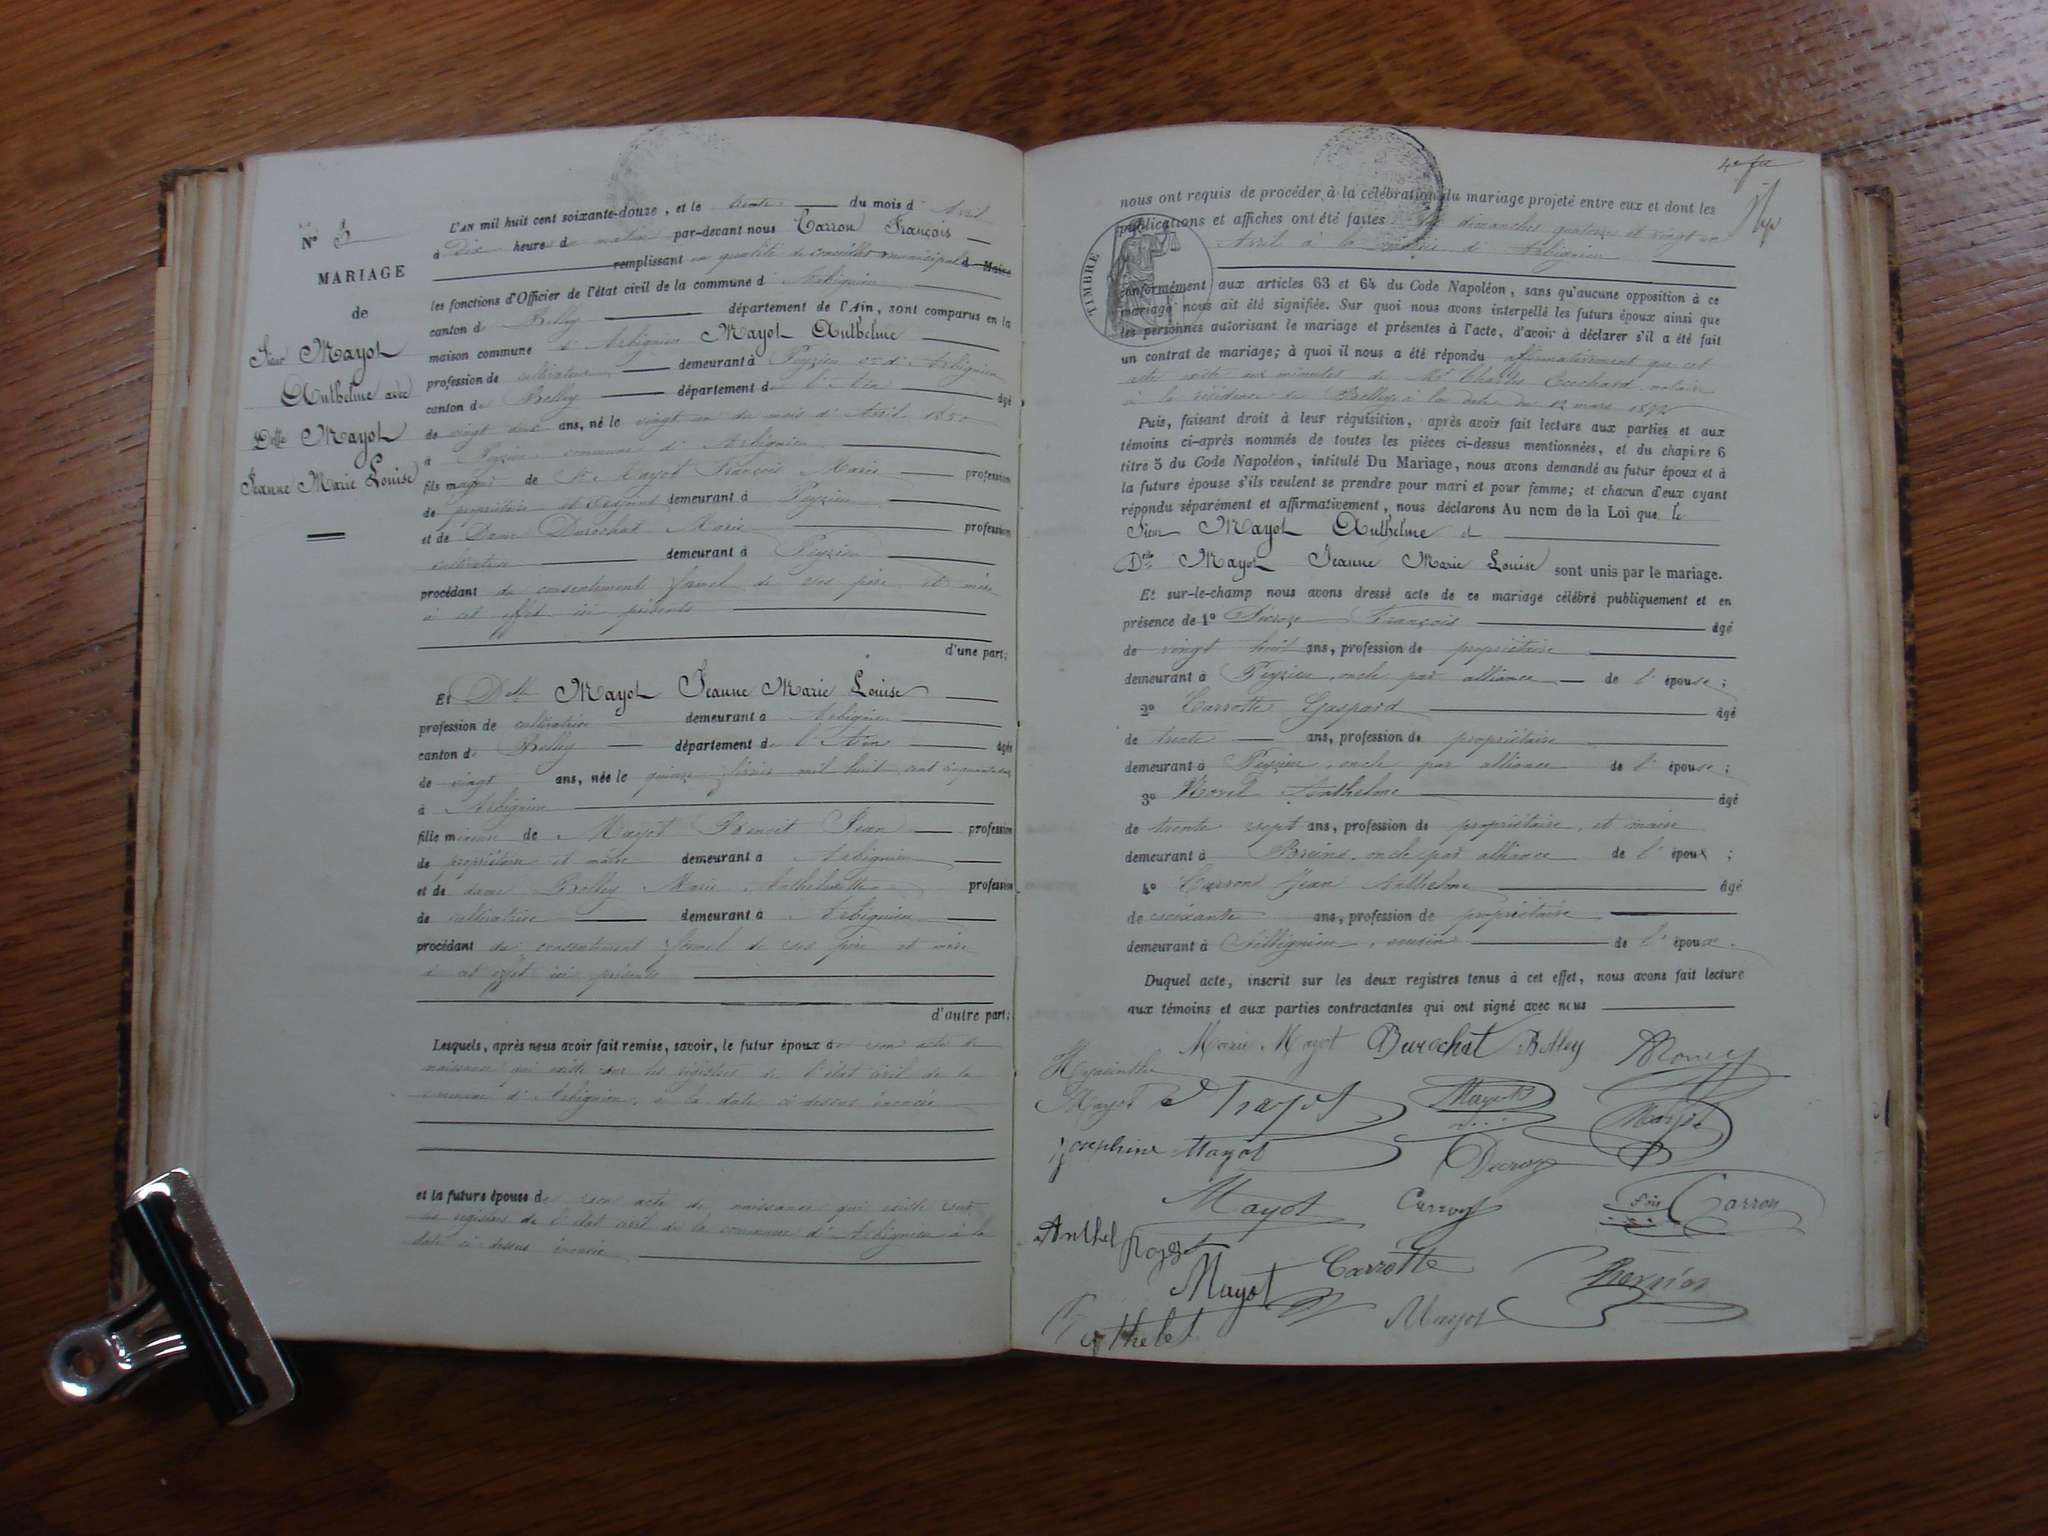 N° 3
MARIAGE
de
Sieur Mayot
Anthelme avec
Delle Mayot
Jeanne Marie Louise
L'AN mil huit cent soixante-douze, et le trente du mois d'Avril
à Dix heure du matin par-devant nous Carron François
remplissant en qualité de conseiller municipal d Maire
les fonctions d'Officier de l'état civil de la commune d'Arbignieu
canton de Belley département de l'Ain, sont comparus en la
maison commune d'Arbignieu Mayot Anthelme
profession de cultivateur demeurant à Peyzieu cne d'Arbignieu
canton de Belley département de l'Ain âgé
de vingt deux ans, né le vingt un du mois d'Avril 1850
à Peyzieu commune d'Arbignieu
fils majeur de Sr Mayot François Marie profession
de propriétaire et Adjoint demeurant à Peyzieu
et de Dame Durochat Marie profession
cultivatrice demeurant à Peyzieu
procédant du consentement formel de ses père et mère
à cet effet ici présents
d'une part;
Et Delle Mayot Jeanne Marie Louise
profession de cultivatrice demeurant à Arbignieu
canton de Belley département de l'Ain âgée
de vingt ans, née le quinze février mil huit cent cinquante deux
à Arbignieu
fille mineure de Mayot Benoit Jean profession
de propriétaire et maire demeurant à Arbignieu
et de dame Belley Marie Anthelmette profession
de cultivatrice demeurant à Arbignieu
procédant du consentement formel de ses père et mère
à cet effet ici présents
d'autre part;
Lesquels, après nous avoir fait remise, savoir, le futur époux de son acte de
naissance qui existe sur les registres de l'état civil de la
commune d'Arbignieu, à la date ci dessus énoncée
et la future épouse de son acte de naissance qui existe sur
les registres de l'état civil de la commune d'Arbignieu à la
date ci dessus énoncée
nous ont requis de procéder à la célébration du mariage projeté entre eux et dont les
publications et affiches ont été faites les dimanches quatorze et vingt un
Avril à la mairie d'Arbignieu
TIMBRE
conformément aux articles 63 et 64 du Code Napoléon, sans qu'aucune opposition à ce
mariage nous ait été signifiée. Sur quoi nous avons interpellé les futurs époux ainsi que
les personnes autorisant le mariage et présentes à l'acte, d'avoir à déclarer s'il a été fait
un contrat de mariage; à quoi il nous a été répondu affirmativement que cet
acte existe aux minutes de Me Charles notaire
à la résidence de Belley à la date du 12 mars 1872
Puis, faisant droit à leur réquisition, après avoir fait lecture aux parties et aux
témoins ci-après nommés de toutes les pièces ci-dessus mentionnées, et du chapitre 6
titre 5 du Code Napoléon, intitulé Du Mariage, nous avons demandé au futur époux et à
la future épouse s'ils veulent se prendre pour mari et pour femme; et chacun d'eux ayant
répondu séparément et affirmativement, nous déclarons Au nom de la Loi que le
Sieur Mayot Anthelme et
Delle Mayot Jeanne Marie Louise sont unis par le mariage.
Et sur-le-champ nous avons dressé acte de ce mariage célébré publiquement et en
présence de 1° Decroze François âgé
de vingt huit ans, profession de propriétaire
demeurant à Peyzieu, oncle par alliance de l'épouse;
2° Carrotte Gaspard âgé
de trente ans, profession de propriétaire
demeurant à Peyzieu, oncle par alliance de l'épouse;
3° Anthelme âgé
de trente sept ans, profession de propriétaire, et maire
demeurant à Brens, oncle par alliance de l'époux;
4° Carron Jean Anthelme âgé
de soixante ans, profession de propriétaire
demeurant à Arbignieu, cousin de l'époux.
Duquel acte, inscrit sur les deux registres tenus à cet effet, nous avons fait lecture
aux témoins et aux parties contractantes qui ont signé avec nous
Marie Mayot Durochat Belley
Hyacinthe
Mayot Mayot Mayot
Josephine Mayot Decroze
Mayot Carron Fois Carron
Anthel
Mayot Carrotte
Mayot